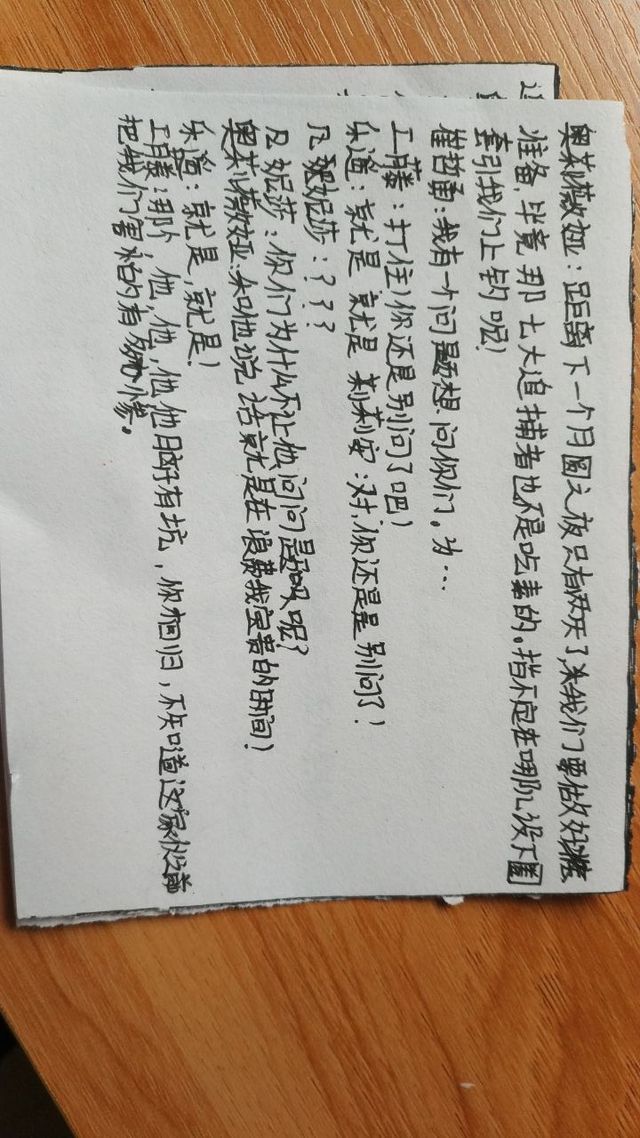 奥莉薇娅：距离下一个月圆之夜只有两天了,我们要做好
准备,毕竟那七大追捕者也不是吃素的。指不定在哪儿设下圈
套引我们上钓呢！
崔哲勇：我有一个问题想问你们。为…
工藤：打住！你还是别问了吧！
乐遥：就是 就是 茉莉安：对,你还是是别问了！
凡妮莎：？？？
凡妮莎：你们为什么不让他问问题呢？
奥莉薇娅：和他说话就是在浪费我宝贵的时间！
乐遥：就是,就是！
工藤：那个 他,他,他他脑子有坑,你刚回归,不知道这家伙之前
把我们害的有多惨。